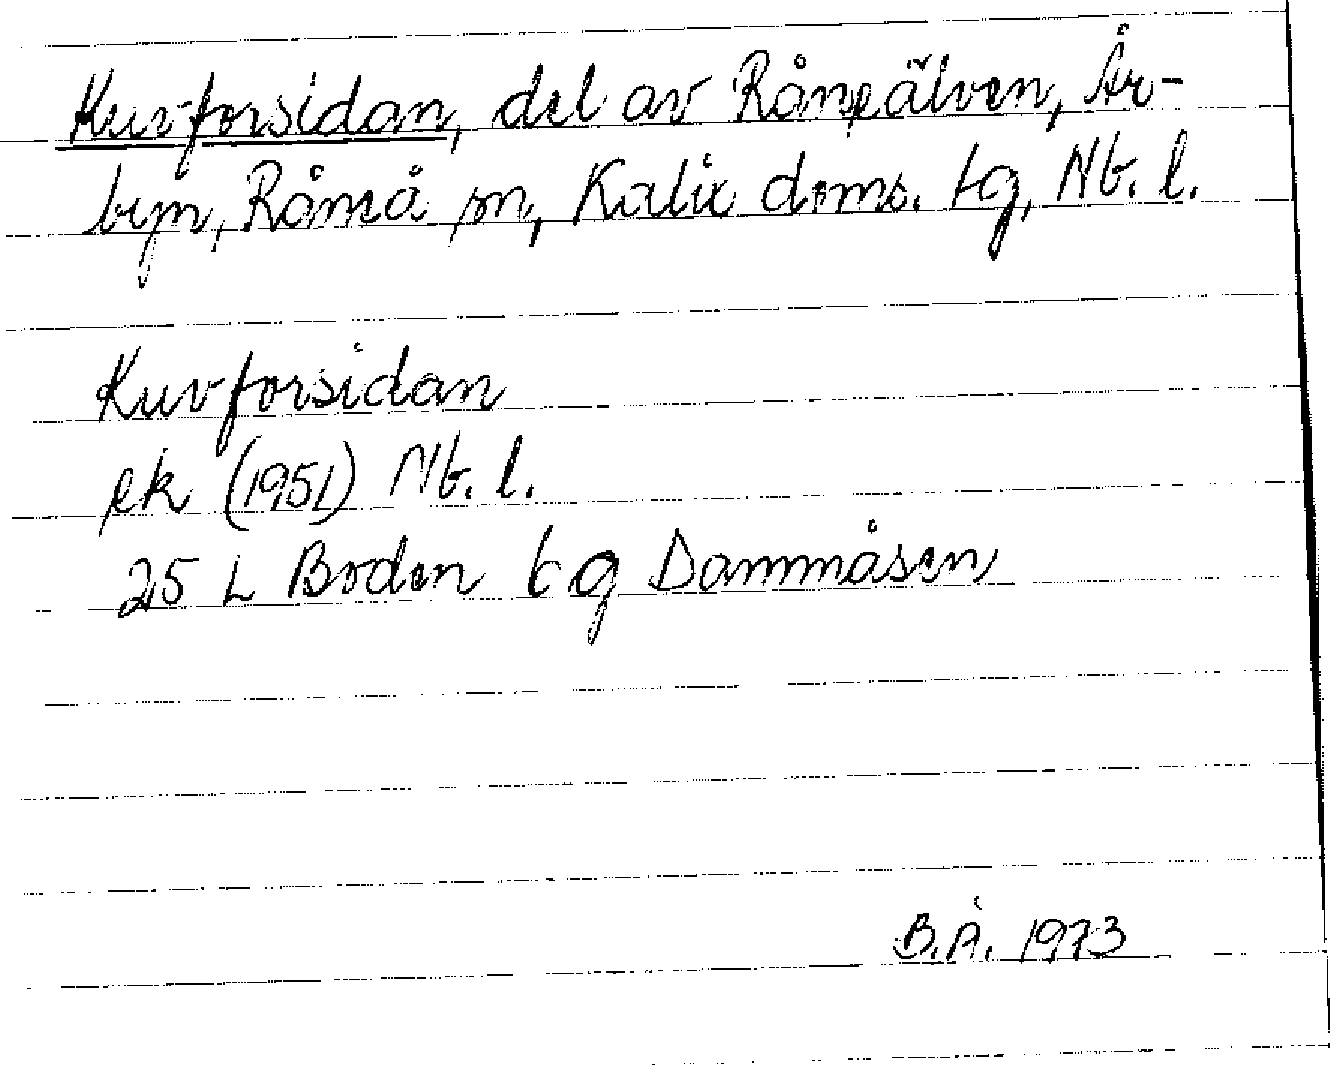 Kuvforsidan, del av Råneälven, År-
byn, Råneå sn, Kalix doms. tg, Nb. l.
Kuvforsidan
ek (1951) Nb. l.
25 L Boden 6 g Dammåsen
B.Å. 1973